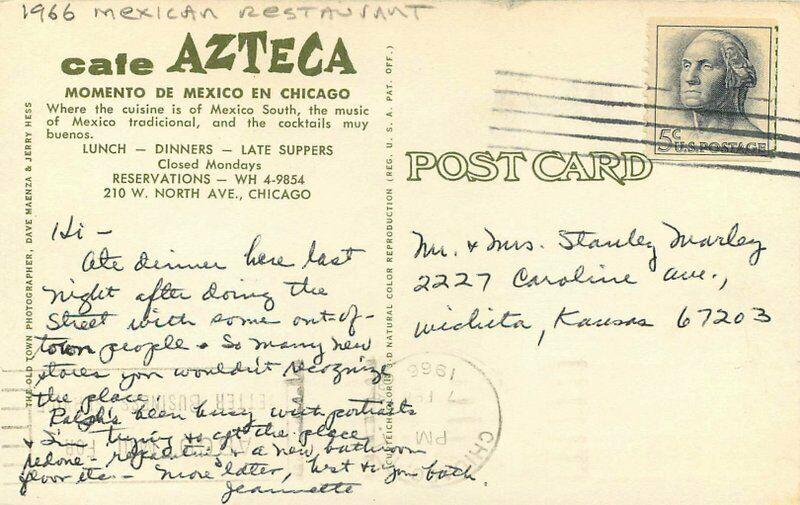 1966 MEXICAN RESTAURANT
cafe AZTECA
MOMENTO DE MEXICO EN CHICAGO
Where the cuisine is of Mexico South, the music
of Mexico tradicional, and the cocktails muy
buenos.
LUNCH — DINNERS — LATE SUPPERS
Closed Mondays
RESERVATIONS — WH 4-9854
210 W. NORTH AVE., CHICAGO
THE OLD TOWN PHOTOGRAPHER, DAVE MAENZA & JERRY HESS
Hi —
Ate dinner here last
night after doing the
Street with some out-of-
town people. So many new
stores you wouldn't recognize
the place
Ralph's been busy with portraits
& I'm trying to get the place
redone - repainting & a new bathroom
floor etc - More later, best to you both.
Jeannette
NATURAL COLOR REPRODUCTION (REG. U. S. A. PAT. OFF.)
5c
U.S. POSTAGE
POST CARD
Mr. & Mrs. Stanley Marley
2227 Caroline Ave.,
Wichita, Kansas 67203
PM
7
1966
BETTER BUSINESS
FOR